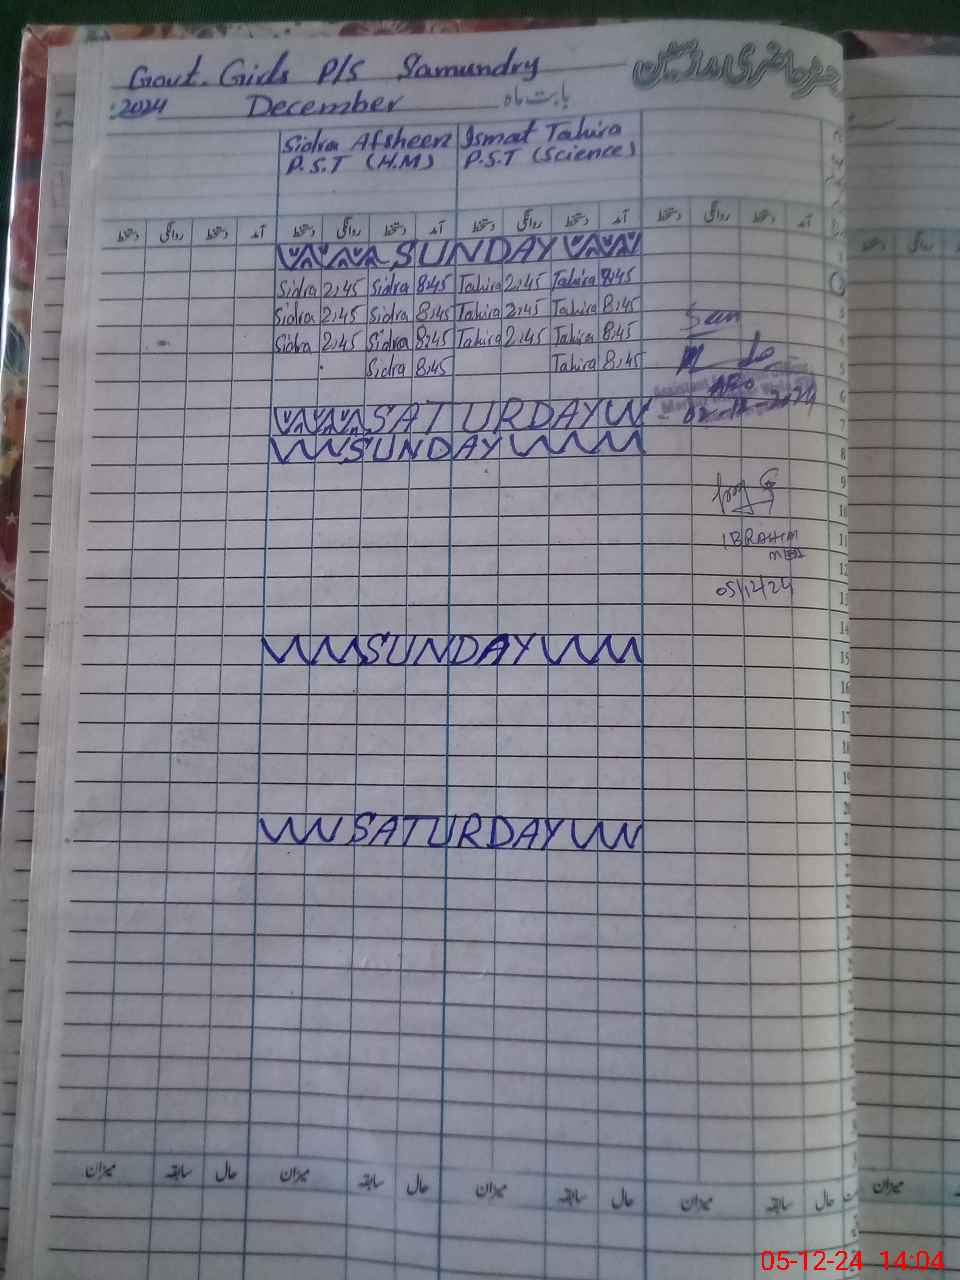 Govt. Girls P/S Samundry
2024 December بابت ماہ
Sidra Afsheen Ismat Tahira
P.S.T (H.M) P.S.T (Science)
دستخط روانگی دستخط آمد دستخط روانگی دستخط آمد دستخط روانگی دستخط آمد دستخط روانگی دستخط آمد
SUNDAY 1
Sidra 2,45 Sidra 8,45 Tahira 2,45 Tahira 8,45
Sidra 2,45 Sidra 8,45 Tahira 2,45 Tahira 8,45 3
Sidra 2,45 Sidra 8,45 Tahira 2,45 Tahira 8,45 4
Sidra 8,45 Tahira 8,45 5
6
SATURDAY 7
SUNDAY 8
9
10
11
IBRAHIM
12
05/12/24 13
14
SUNDAY 15
16
17
18
19
20
SATURDAY 21
میزان سابقہ حال میزان سابقہ حال میزان سابقہ حال میزان سابقہ حال میزان
05-12-24 14:04